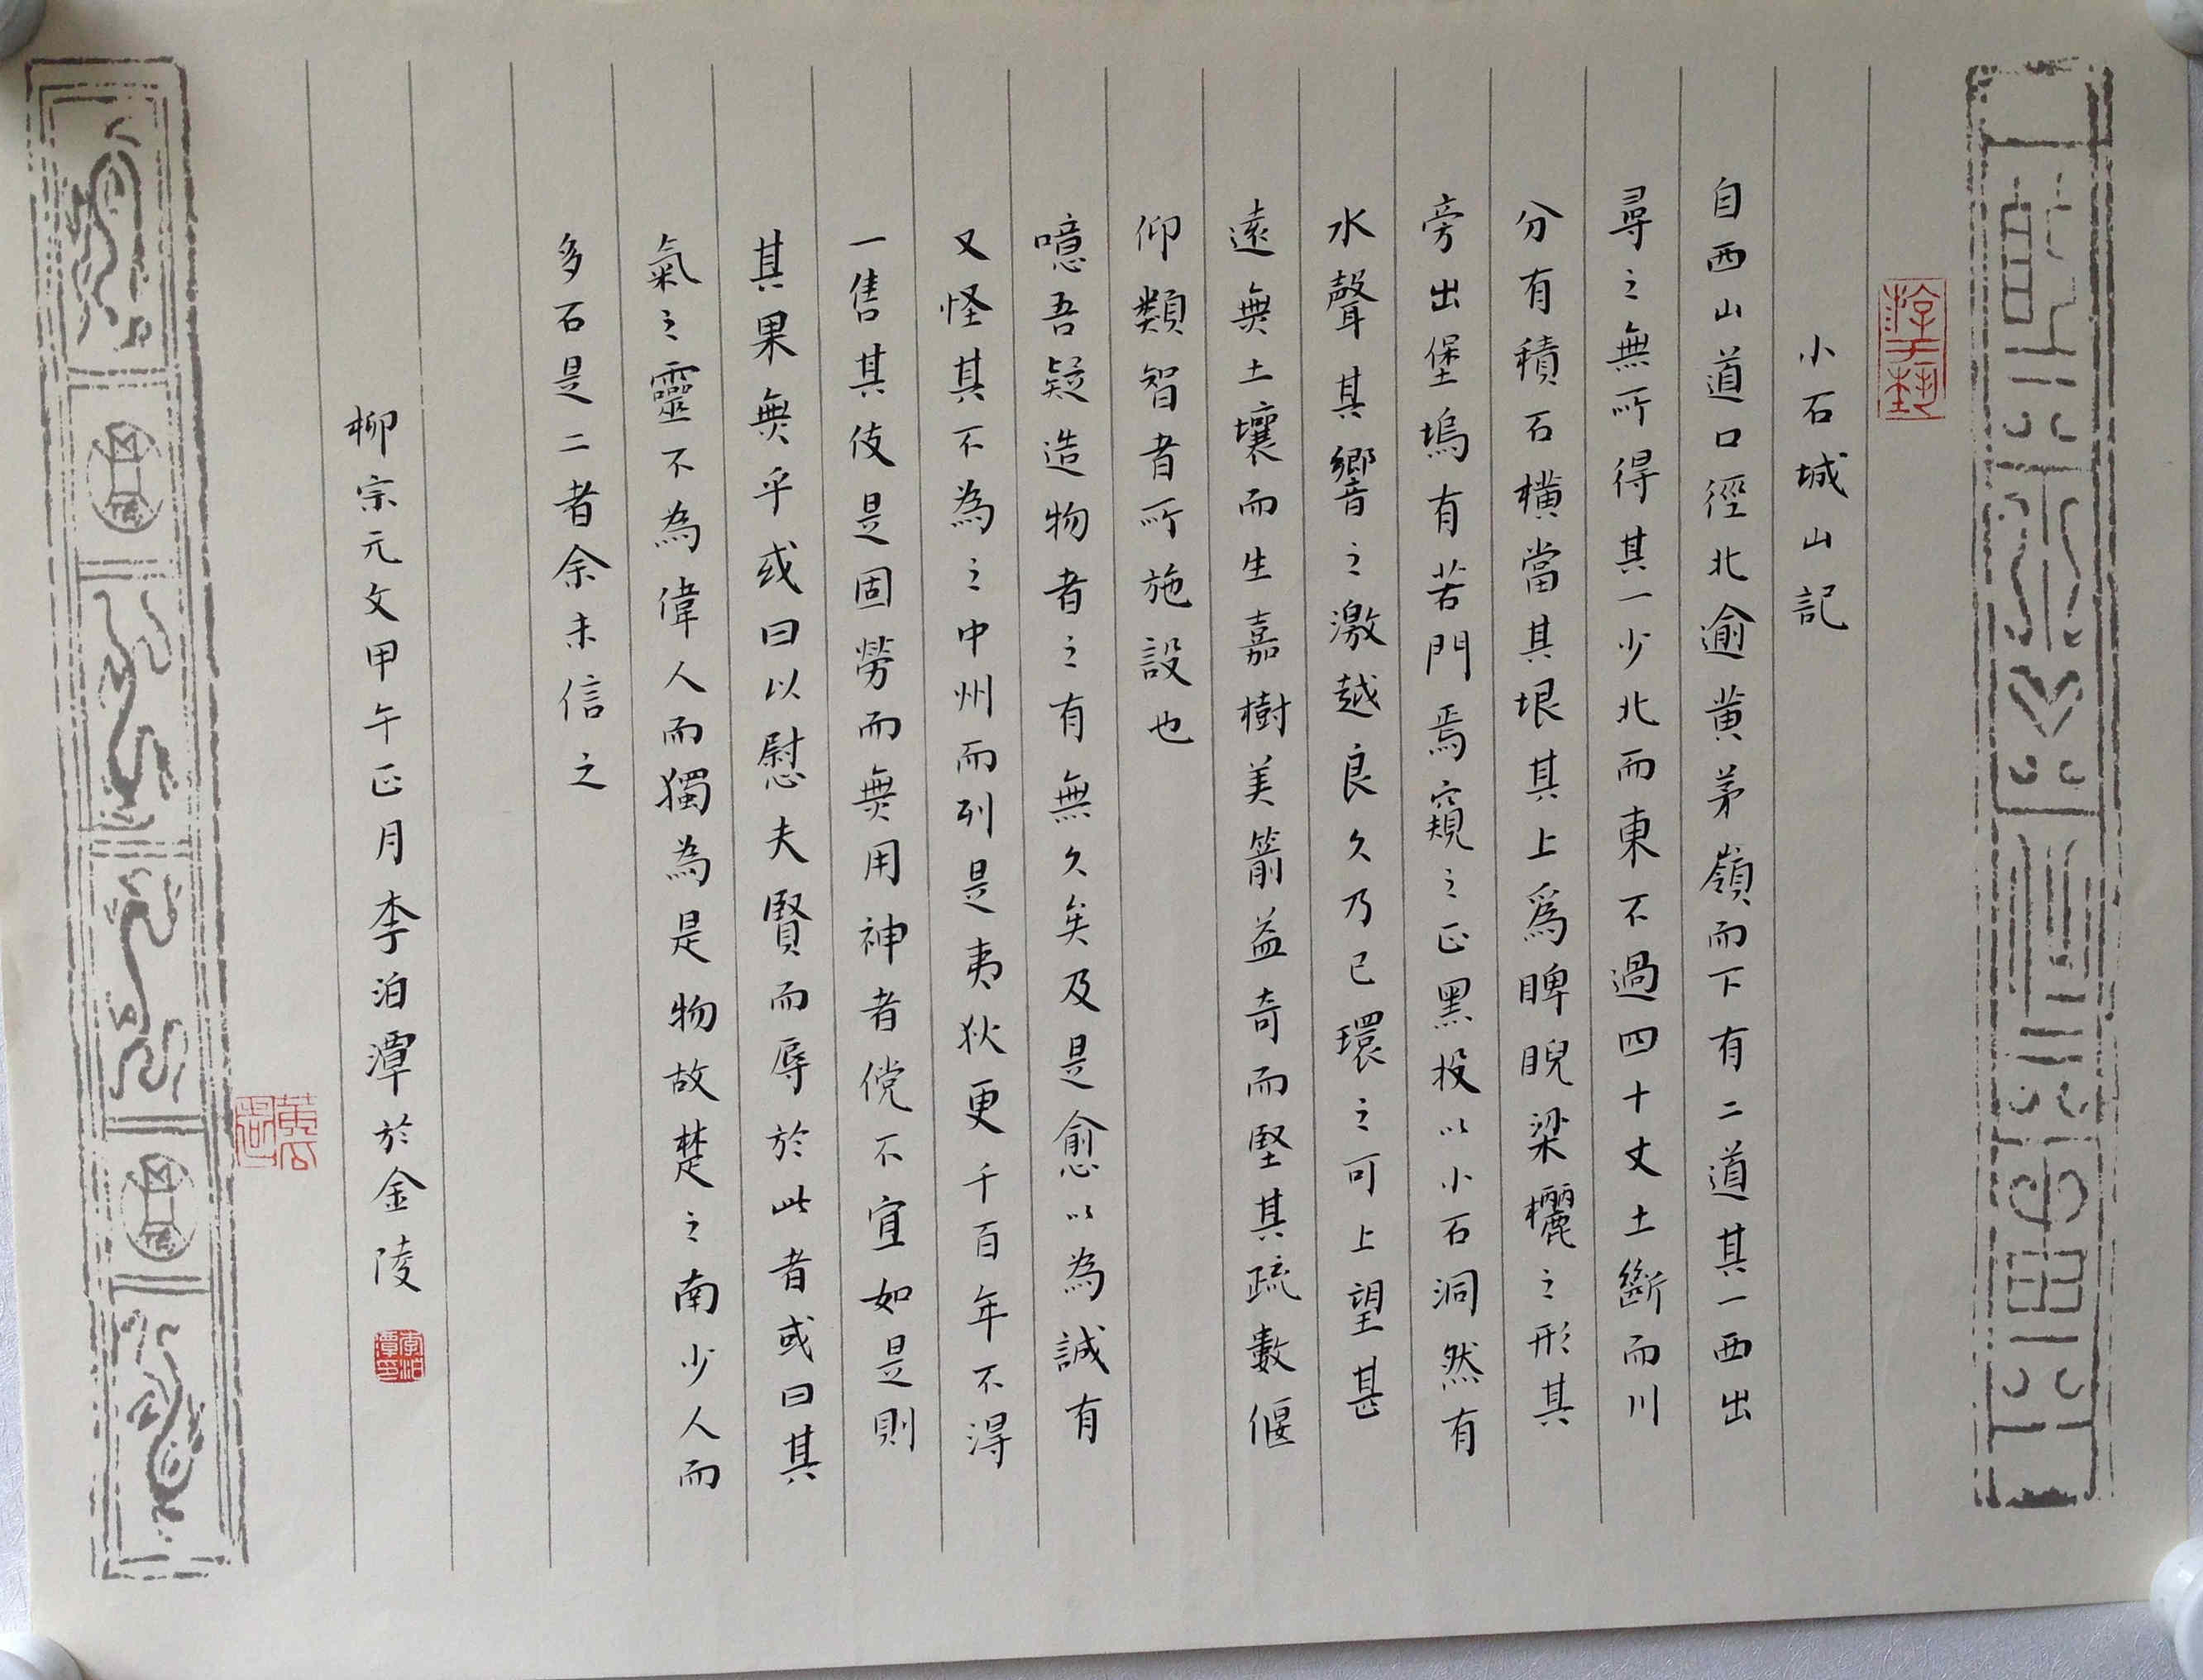 小石城山記
自西山道口徑北逾黃茅嶺而下有二道其一西出
尋之無所得其一少北而東不過四十丈土斷而川
分有積石橫當其垠其上爲睥睨梁欐之形其
旁出堡塢有若門焉窺之正黑投以小石洞然有
水聲其響之激越良久乃已環之可上望甚
遠無土壤而生嘉樹美箭益奇而堅其疏數偃
仰類智者所施設也
噫吾疑造物者之有無久矣及是愈以為誠有
又怪其不為之中州而列是夷狄更千百年不得
一售其伎是固勞而無用神者儻不宜如是則
其果無乎或曰以慰夫賢而辱於此者或曰其
氣之靈不為偉人而獨為是物故楚之南少人而
多石是二者余未信之
柳宗元文甲午正月李泊潭於金陵
李泊潭印